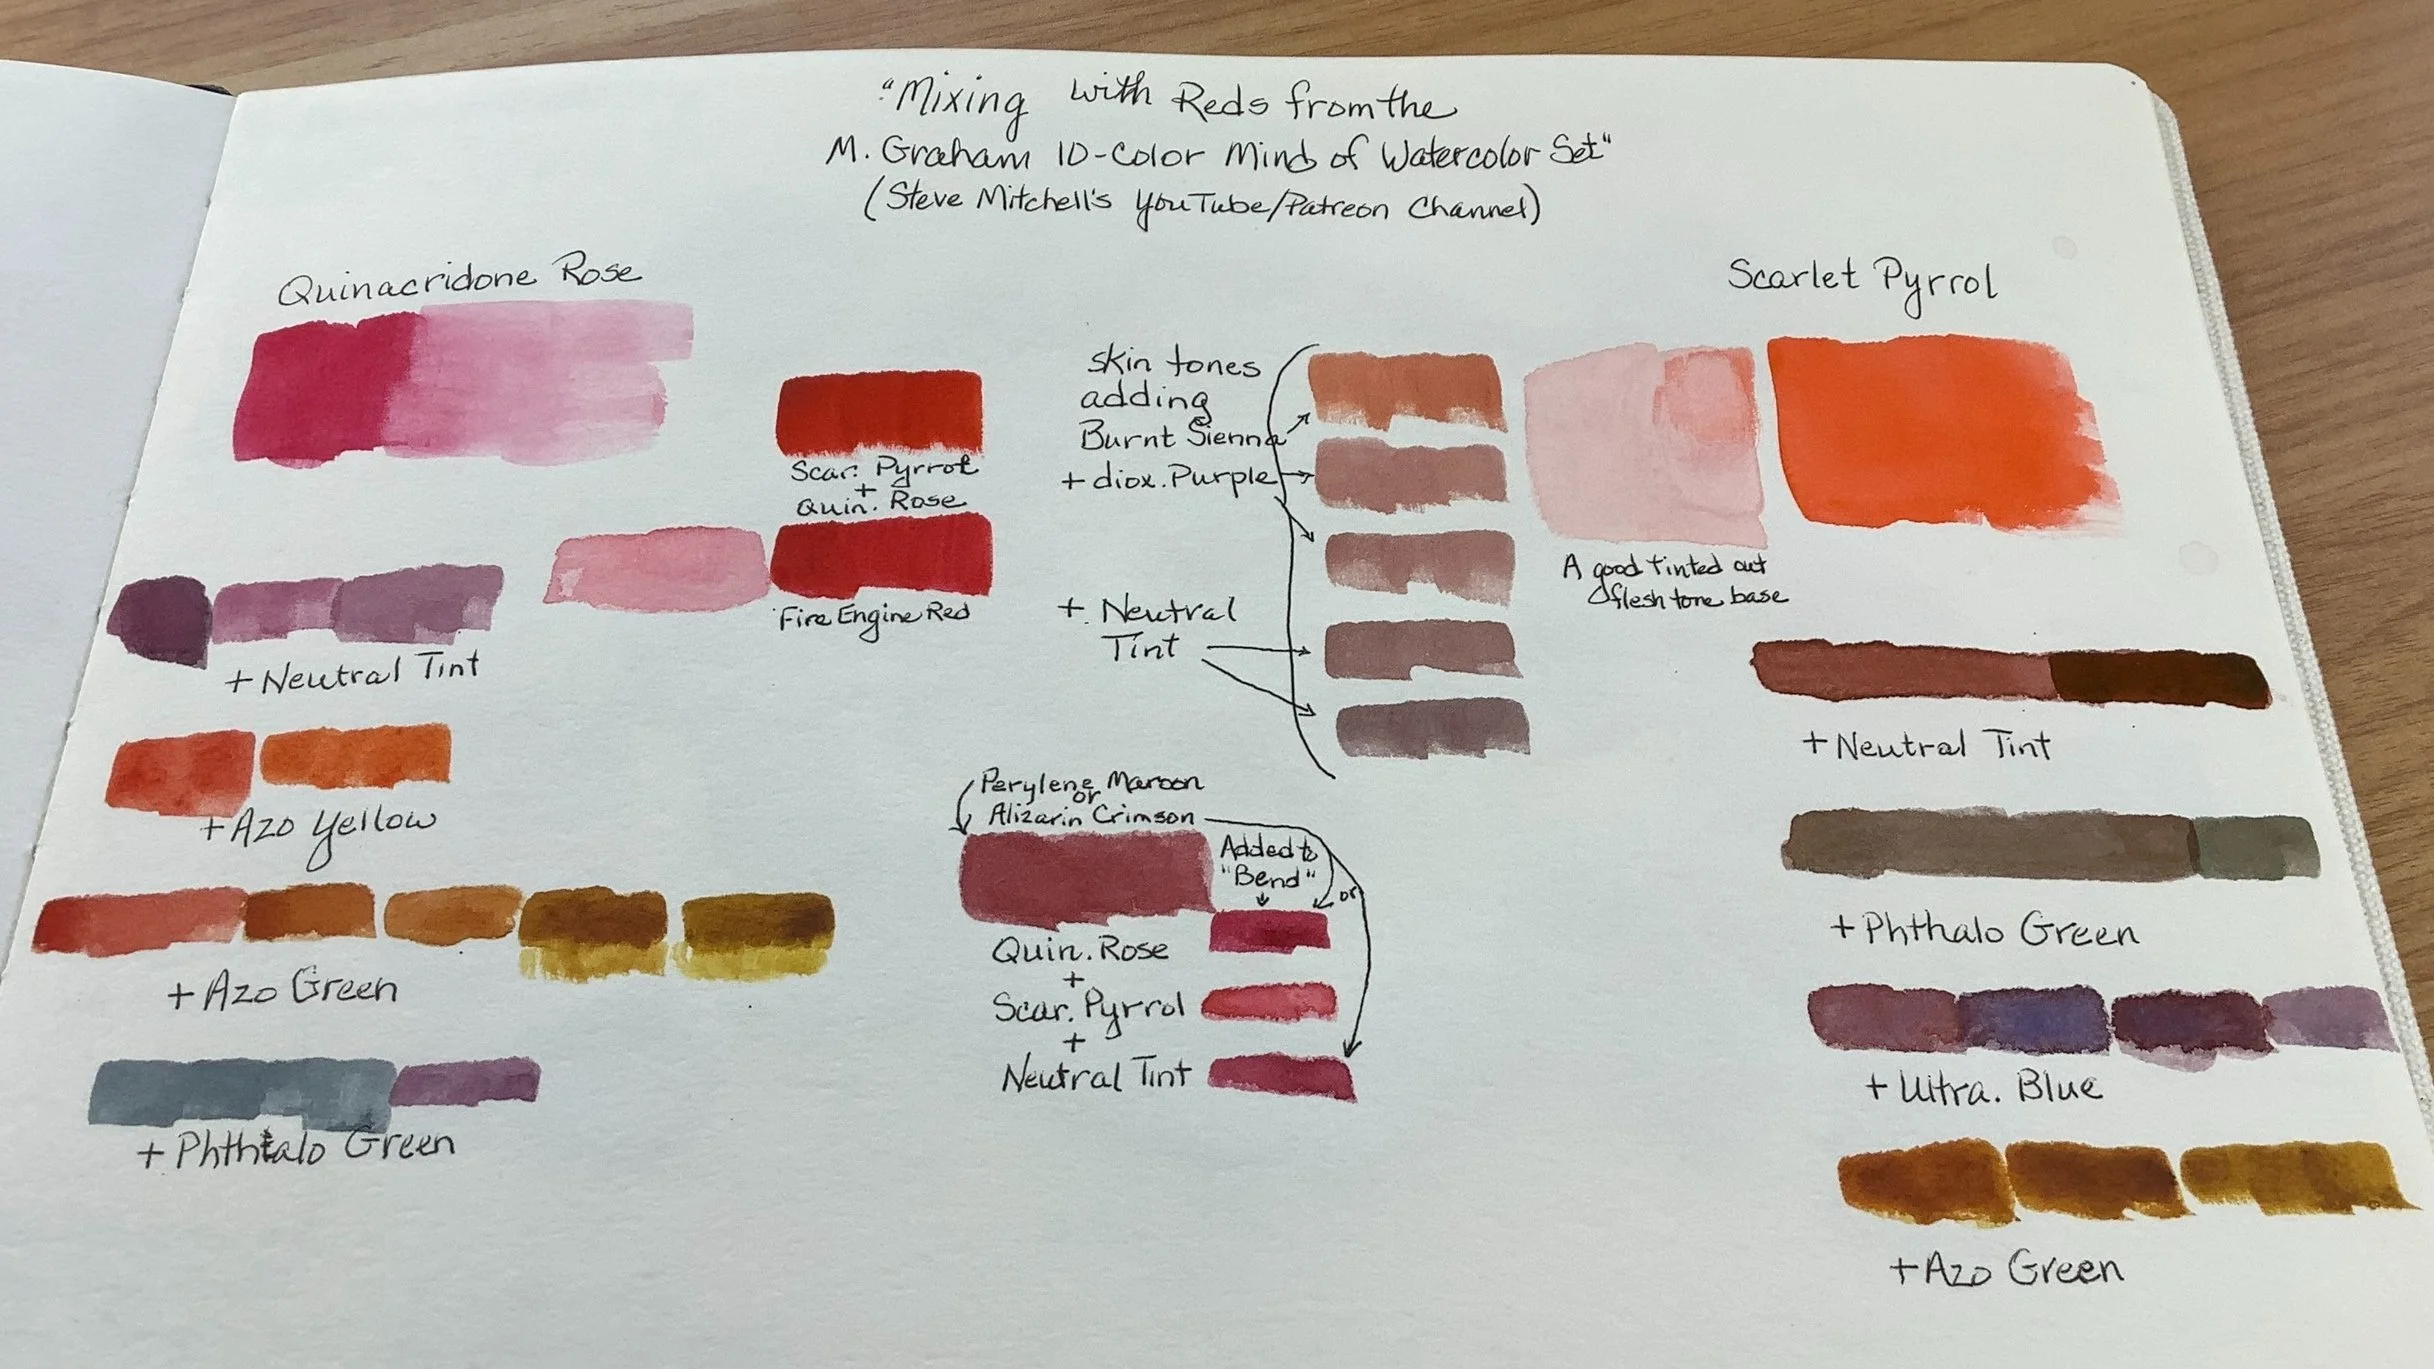 "Mixing with Reds from the
M. Graham 10-Color Mind of Watercolor Set"
(Steve Mitchell's YouTube/Patreon Channel)
Quinacridone Rose
+ Neutral Tint
+ Azo Yellow
+ Azo Green
+ Phthtalo Green
Scar. Pyrrol
+
Quin. Rose
Fire Engine Red
skin tones
adding
Burnt Sienna
+ diox. Purple
+ Neutral
Tint
Perylene Maroon
or
Alizarin Crimson
Added to
"Bend"
or
Quin. Rose
+
Scar. Pyrrol
+
Neutral Tint
Scarlet Pyrrol
A good tinted out
flesh tone base
+ Neutral Tint
+ Phthalo Green
+ Ultra. Blue
+ Azo Green